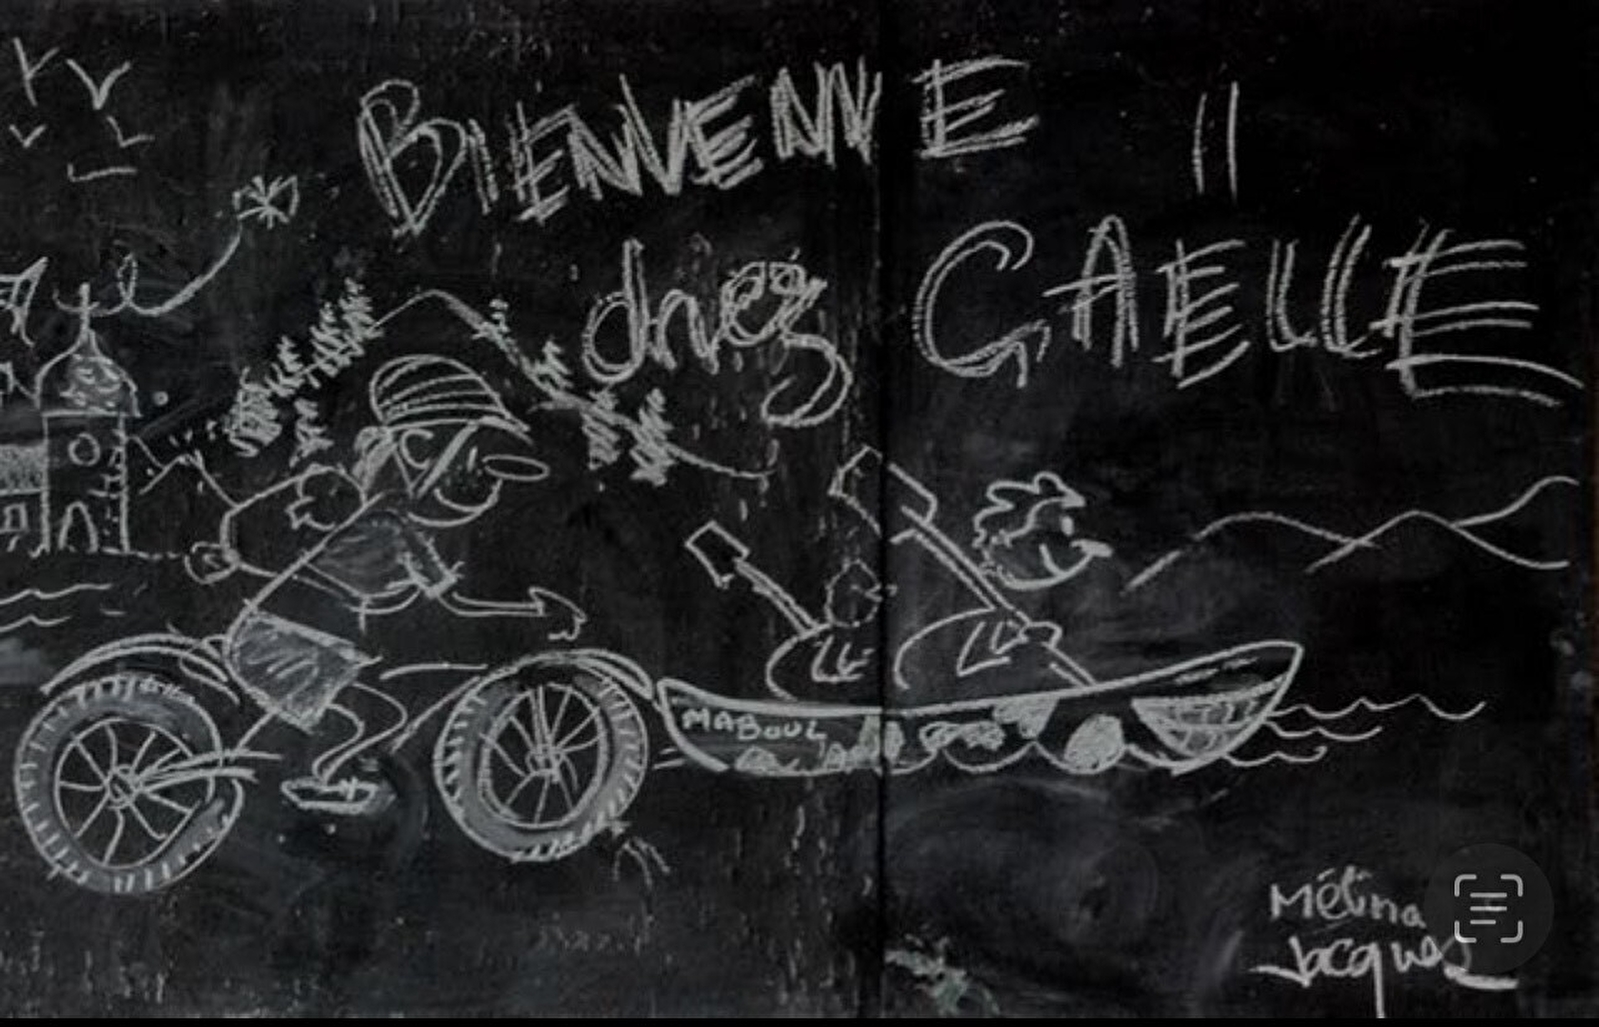 BIENVENUE
chez GAELLE
MABOUL
Mélina
Jacques